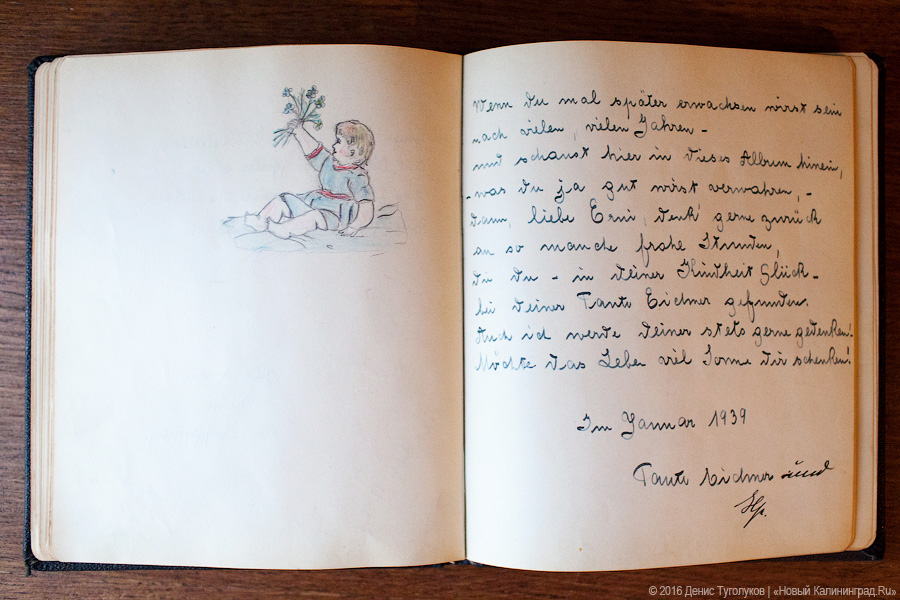 Wenn du mal später erwachsen wirst sein
nach vielen, vielen Jahren -
und schaust hier in dieses Album hinein,
- was du ja gut wirst verwahren, -
dann, liebe Erni, denk' gerne zurück
an so manche frohe Stunden,
die du - in deiner Kindheit Glück -
bei deiner Tante Eichner gefunden.
Auch ich werde deiner stets gerne gedenken!
Möchte das Leben viel Sonne dir schenken!
Im Januar 1939
Tante Eichner und
© 2016 Денис Туголуков | «Новый Калининград.Ru»